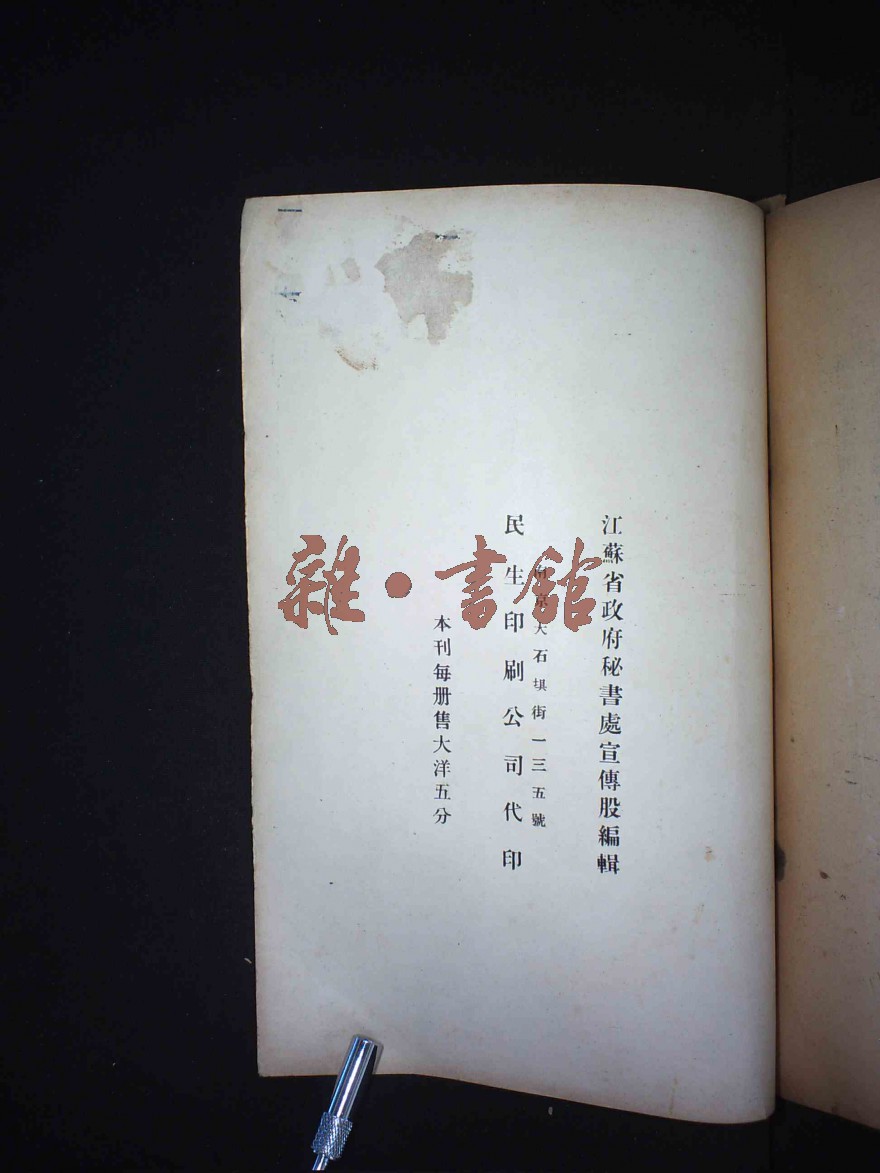 江蘇省政府秘書處宣傳股編輯
南京大石埧街一三五號
民生印刷公司代印
本刊每册售大洋五分
雜·書館